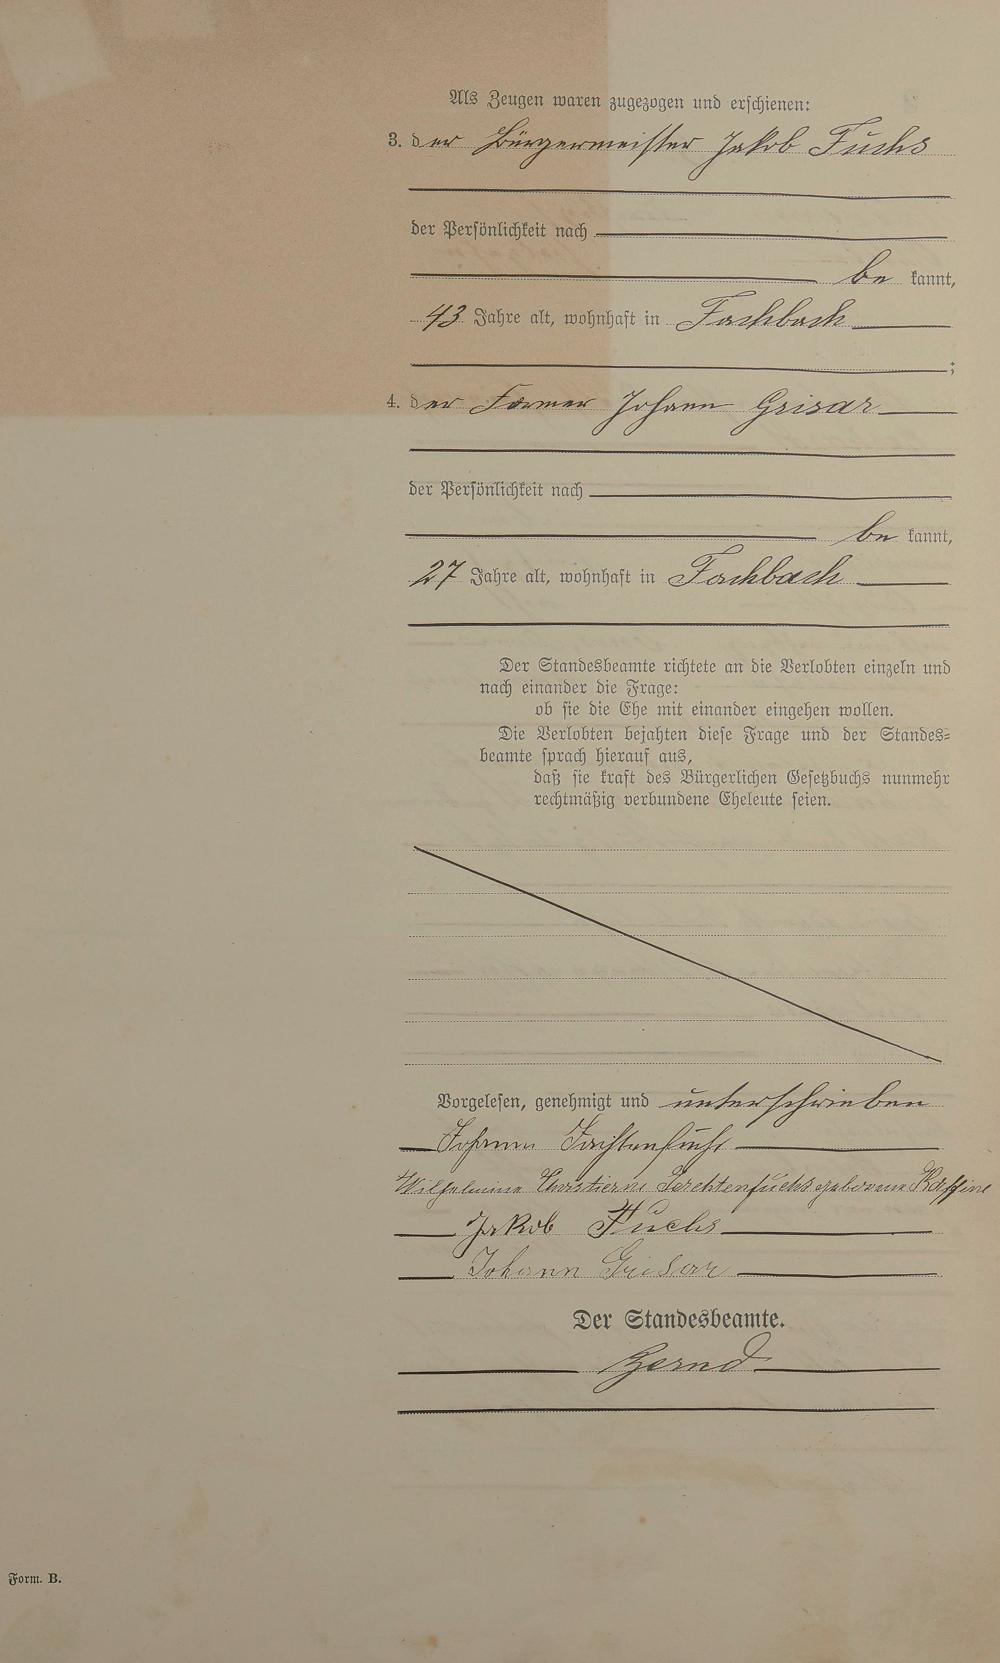 Als Zeugen waren zugezogen und erschienen:
3. der Bürgermeister Jakob Fuchs
der Persönlichkeit nach
be kannt,
43 Jahre alt, wohnhaft in Fachbach
;
4. der Former Johann Grisar
der Persönlichkeit nach
be kannt,
27 Jahre alt, wohnhaft in Fachbach
Der Standesbeamte richtete an die Verlobten einzeln und
nach einander die Frage:
ob sie die Ehe mit einander eingehen wollen.
Die Verlobten bejahten diese Frage und der Standes=
beamte sprach hierauf aus,
daß sie kraft des Bürgerlichen Gesetzbuchs nunmehr
rechtmäßig verbundene Eheleute seien.
Vorgelesen, genehmigt und unterschrieben
Johann
Wilhelmine geborene
Jakob Fuchs
Johann Grisar
Der Standesbeamte.
Form. B.